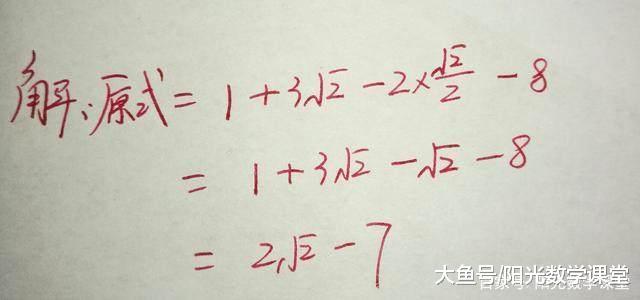 解:原式= 1+3√2-2×√2/2-8
= 1+3√2-√2-8
= 2√2-7
大鱼号/阳光数学课堂